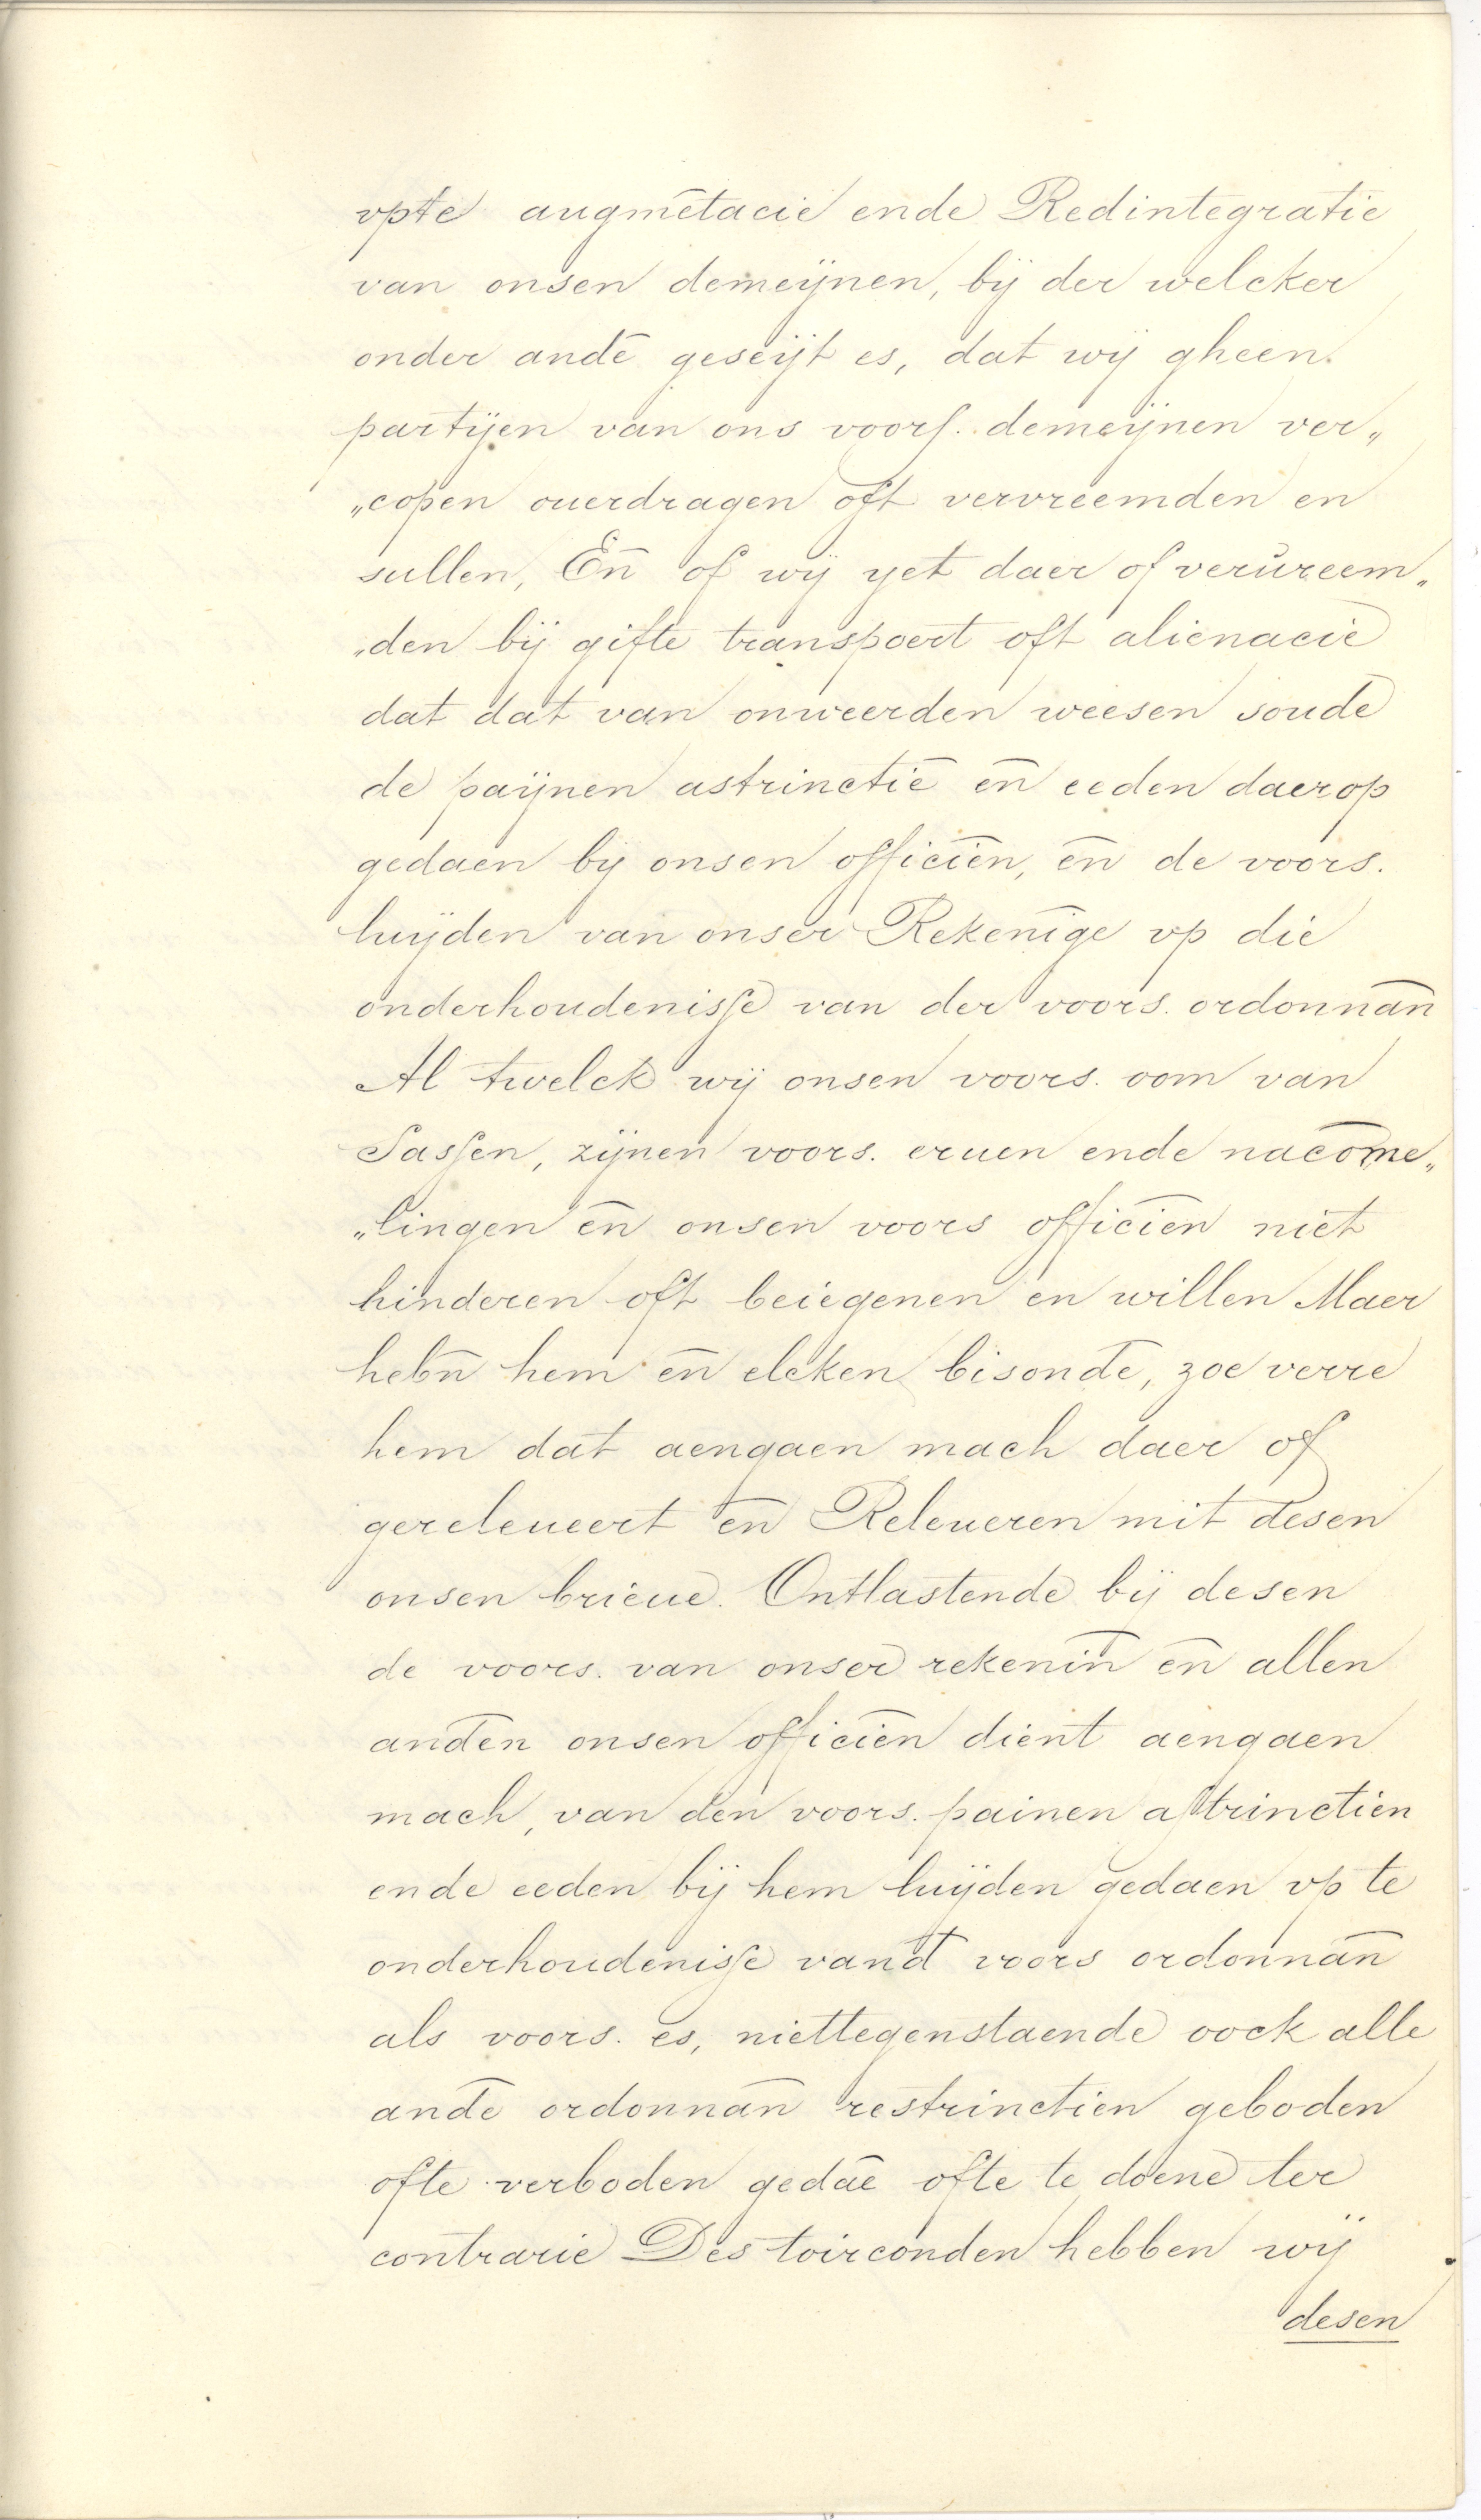 vpte augmētacie ende Redintegratie
van onsen demeijnen, bij der welcker
onder andē geseijt es, dat wij gheen
partijen van ons voors. demeijnen ver„
„copen ouerdragen oft vervreemden en
sullen, En̄ of wij yet daer of verŭreem„
„den bij gifte transpoert oft alienacie
dat dat van onweerden weesen soude
de paijnen astrinctiē en̄ eeden daerop
gedaen bij onsen officiēn, en̄ de voors.
luijden van onser Rekenīge vp die
onderhoudenisse van der voors. ordonnan̄
Al twelck wij onsen voors. oom van
Sassen, zijnen voors. eruen ende nacōme„
„lingen en̄ onsen voors officiēn niet
hinderen oft beiegenen en willen Maer
hebn̄ hem en̄ elcken bisondē, zoe verre
hem dat aengaen mach daer of
gereleueert en̄ Releueren mit desen
onsen brieue. Ontlastende bij desen
de voors. van onser rekenin̄ en̄ allen
andēn onsen officiēn dient aengaen
mach, van den voors. painen astrinctien
ende eeden bij hem luijden gedaen vp te
onderhoudenisse vand̄ voors ordonnan̄
als voors. es, niettegenstaende oock alle
andē ordonnan̄ restrinctien geboden
ofte verboden gedāe ofte te doene ter
contrarie Des toirconden hebben wij
desen